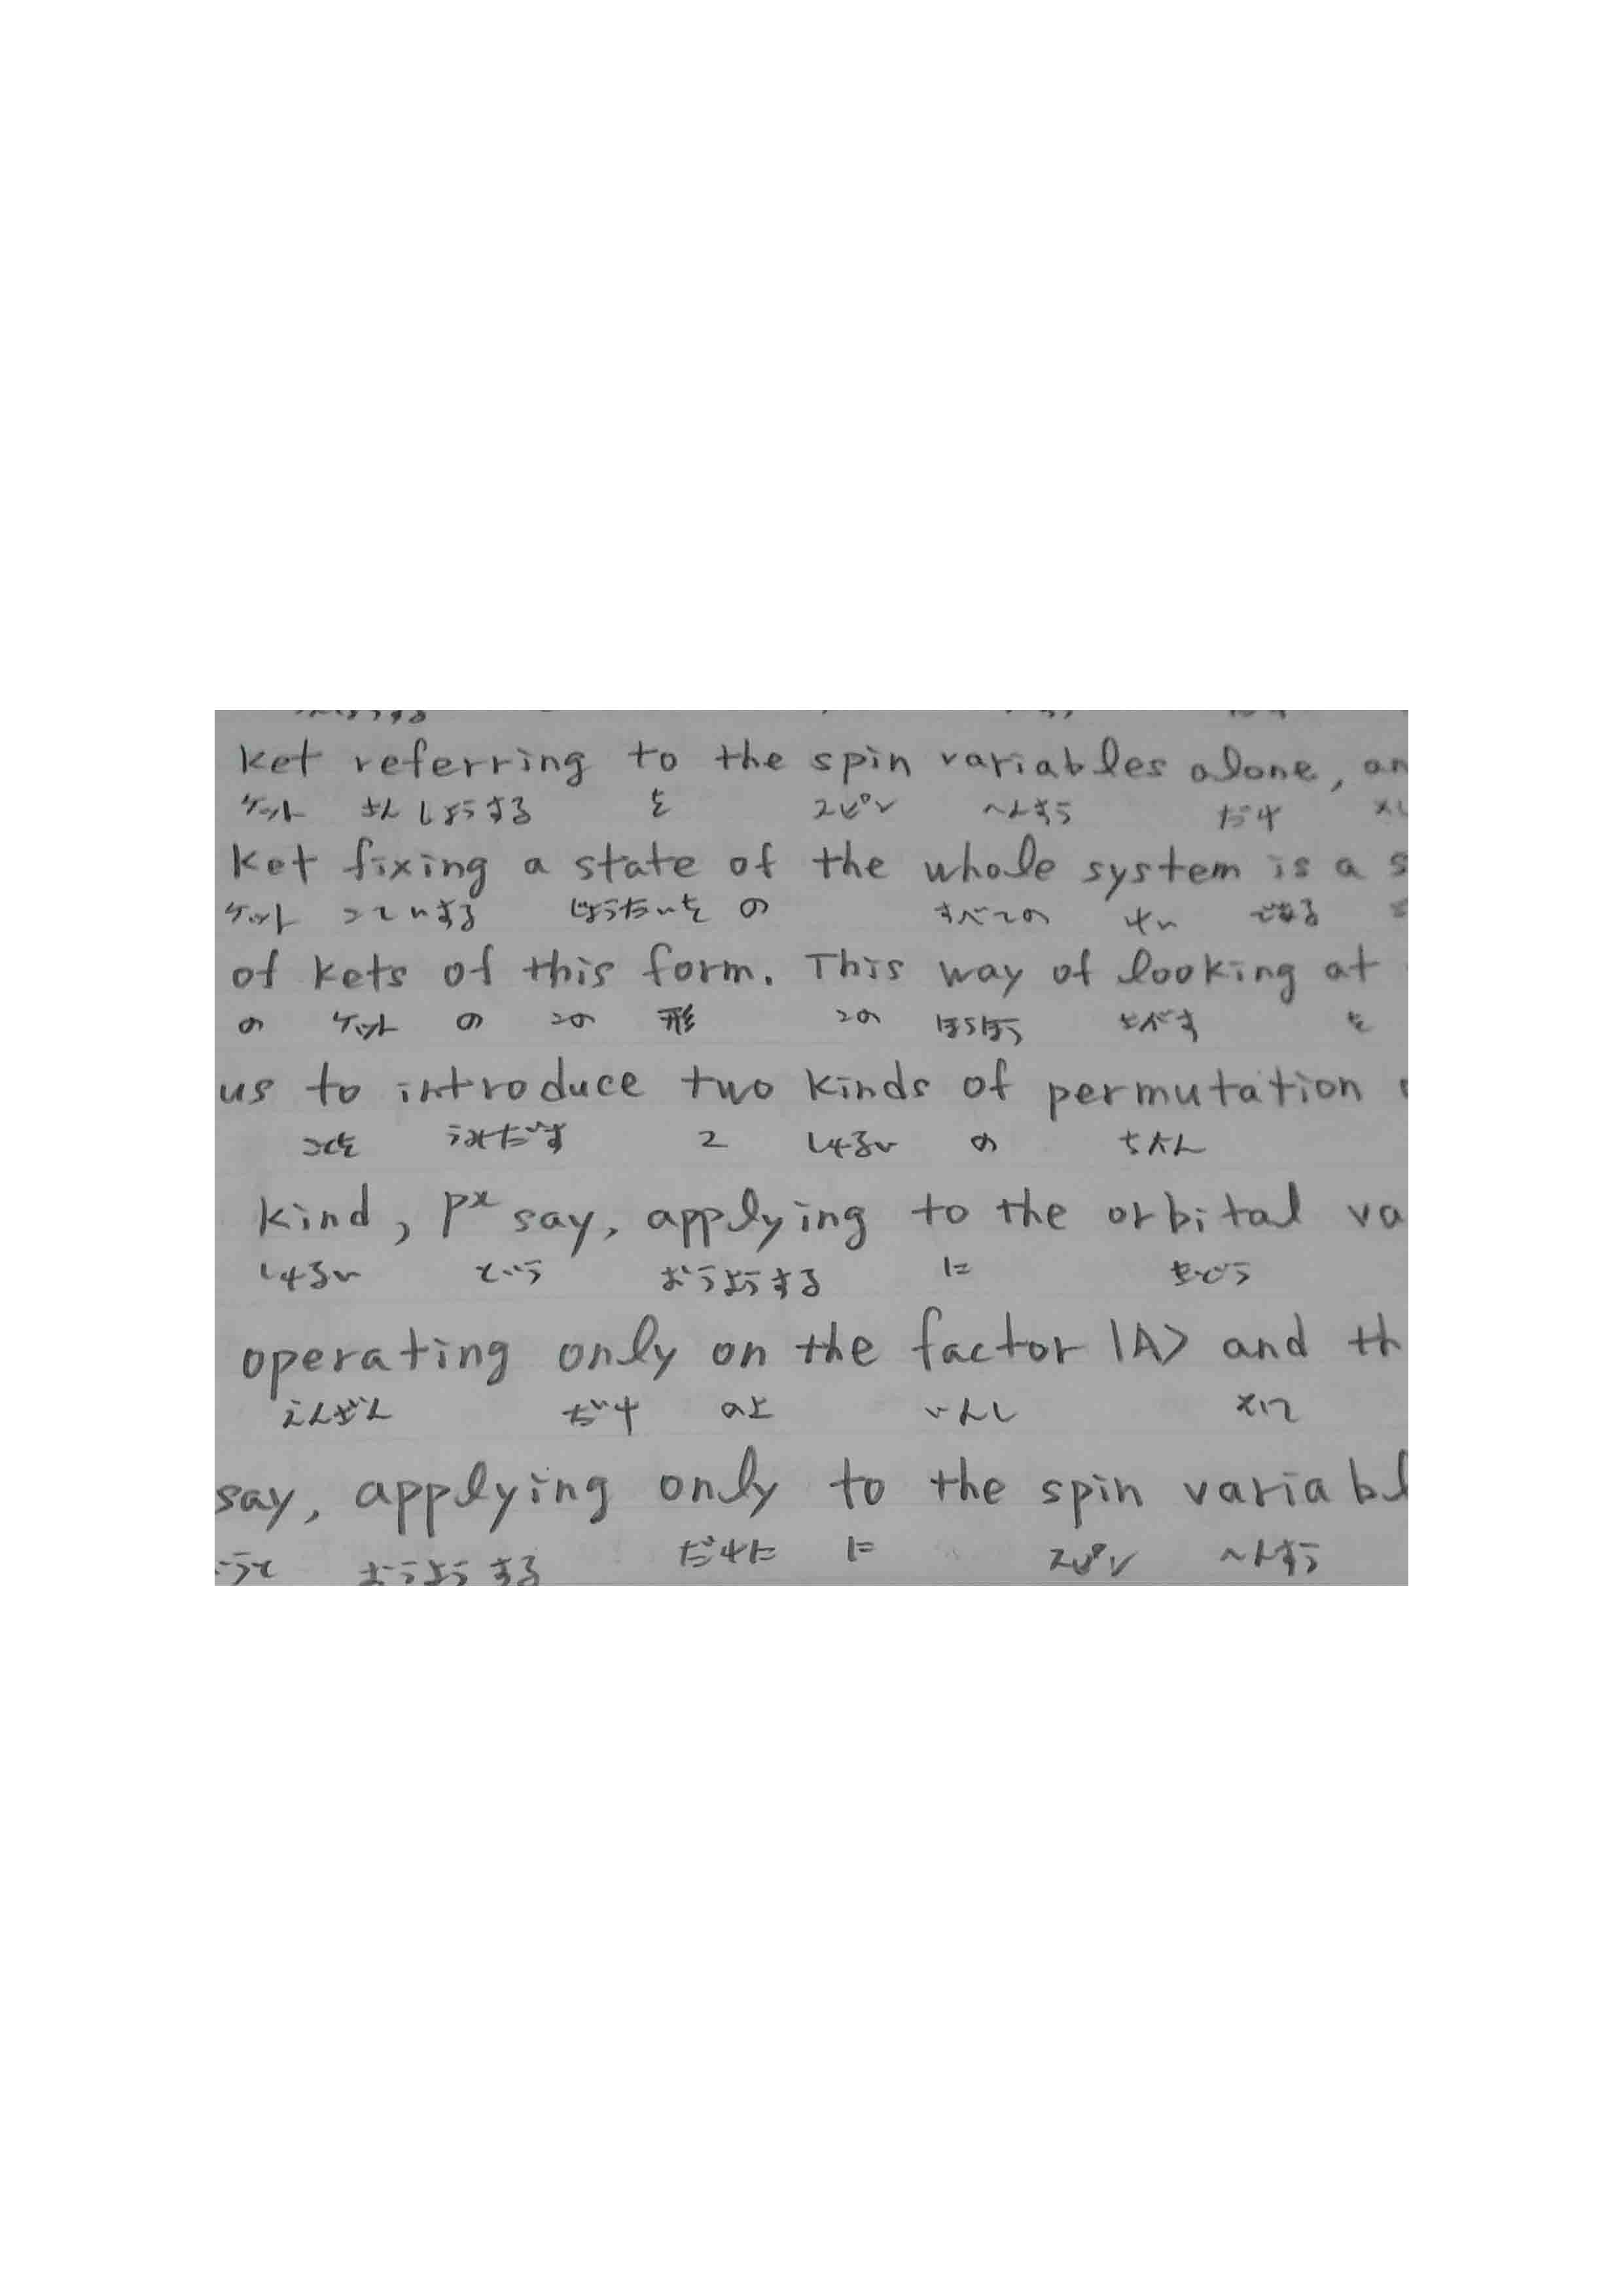 ket referring to the spin variables alone, an
ケット さんしょうする を スピン へんすう だけ
ket fixing a state of the whole system is a s
ケット こていする じょうたいを の すべての けい である
of kets of this form. This way of looking at
の ケット の この 形 この ほうほう を
us to introduce two kinds of permutation
ことを うみだす 2 しゅるい の ちかん
kind, Pˣ say, applying to the orbital va
しゅるい という おうようする に きどう
operating only on the factor |A> and th
えんざん だけ の上 いんし
say, applying only to the spin variabl
おうようする だけに に スピン へんすう